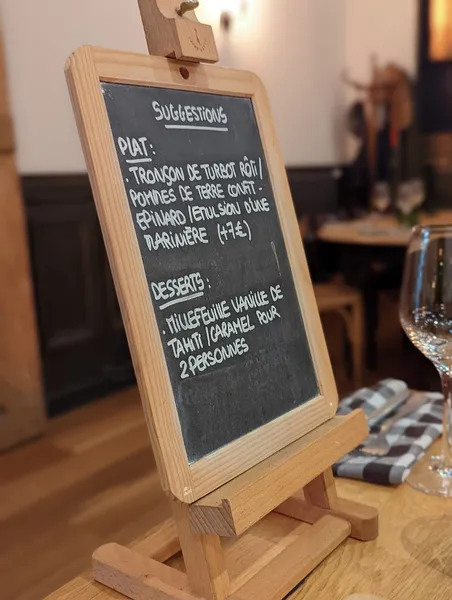 SUGGESTIONS
PLAT:
. TRONÇON DE TURBOT RÔTI/
POMMES DE TERRE CONFIT-
EPINARD/EMULSION D'UNE
MARINIÈRE (+7€)
DESSERTS:
. MILLEFEUILLE VANILLE DE
TAHITI/CARAMEL POUR
2 PERSONNES